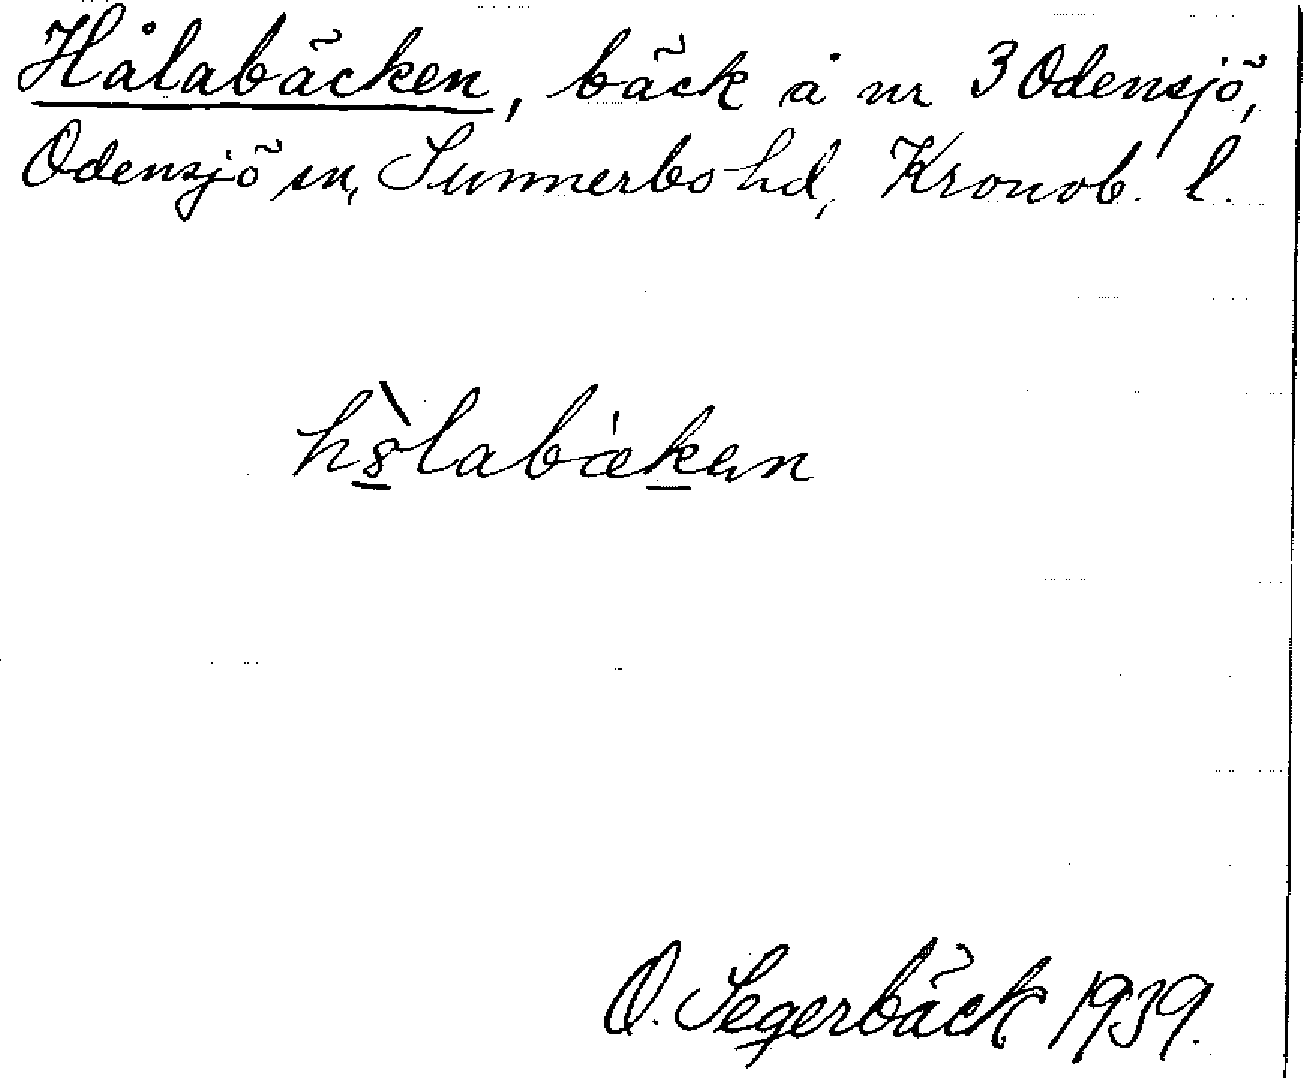 Hålabäcken, bäck å nr 3 Odensjö,
Odensjö sn, Sunnerbo hd, Kronob. l.
hòlabækən
O. Segerbäck 1939.